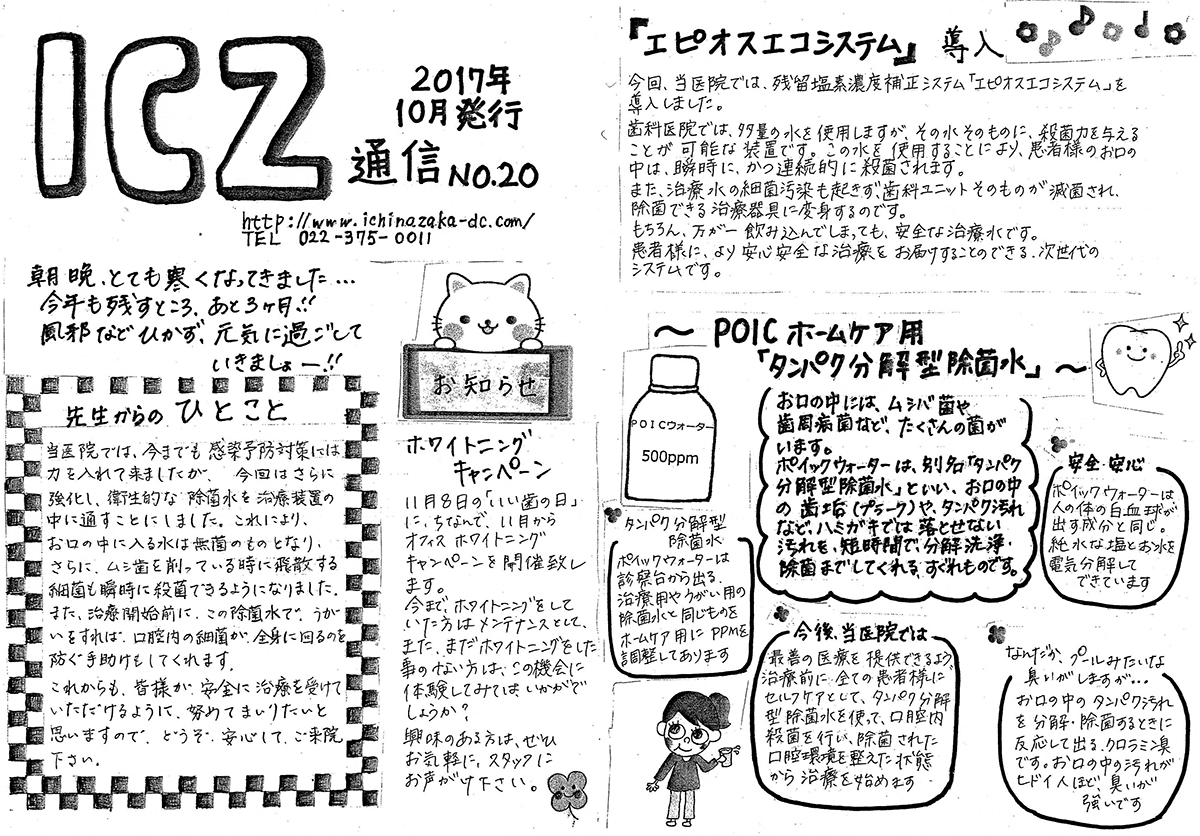 ICZ
2017年
10月発行
通信 NO.20
http://www.ichinazaka-dc.com/
TEL 022-375-0011
朝晩、とても寒くなってきました…
今年も残すところ、あと3ヶ月!!
風邪などひかず、元気に過ごして
いきましょー!!
先生からの ひとこと
当医院では、今までも感染予防対策には
力を入れて来ましたが、今回はさらに
強化し、衛生的な除菌水を治療装置の
中に通すことにしました。これにより、
お口の中に入る水は無菌のものとなり、
さらに、ムシ歯を削っている時に飛散する
細菌も瞬時に殺菌できるようになりました。
また、治療開始前に、この除菌水で、うが
いをすれば、口腔内の細菌が、全身に回るのを
防ぐ手助けもしてくれます。
これからも、皆様が、安全に治療を受けて
いただけるように、努めてまいりたいと
思いますので、どうぞ、安心して、ご来院
下さい。
お知らせ
ホワイトニング
キャンペーン
11月8日の「いい歯の日」
に、ちなんで、11月から
オフィスホワイトニング
キャンペーンを開催致し
ます。
今まで、ホワイトニングをして
いた方はメンテナンスとして、
また、まだホワイトニングをした
事のない方は、この機会に
体験してみてはいかがで
しょうか?
興味のある方は、ぜひ
お気軽に、スタッフに
お声がけ下さい。
『エピオスエコシステム』 導入
今回、当医院では、残留塩素濃度補正システム「エピオスエコシステム」を
導入しました。
歯科医院では、多量の水を使用しますが、その水そのものに、殺菌力を与える
ことが可能な装置です。この水を使用することにより、患者様のお口の
中は、瞬時に、かつ連続的に殺菌されます。
また、治療水の細菌汚染も起きず、歯科ユニットそのものが滅菌され、
除菌できる治療器具に変身するのです。
もちろん、万が一飲み込んでしまっても、安全な治療水です。
患者様に、より安心安全な治療をお届けすることのできる、次世代の
システムです。
〜 POIC ホームケア用
「タンパク分解型除菌水」〜
POICウォーター
500ppm
お口の中には、ムシバ菌や
歯周病菌など、たくさんの菌が
います。
ポイックウォーターは、別名「タンパク
分解型除菌水」といい、お口の中
の歯垢(プラーク)や、タンパク汚れ
など、ハミガキでは落とせない
汚れを、短時間で、分解・洗浄・
除菌までしてくれる、すぐれものです。
安全・安心
ポイックウォーターは
人の体の白血球が
出す成分と同じ。
純水な塩とお水を
電気分解して
できています
タンパク分解型
除菌水
ポイックウォーターは
診察台から出る、
治療用やうがい用の
除菌水と同じものを
ホームケア用にPPMを
調整してあります
今後、当医院では
最善の医療を提供できるよう、
治療前に全ての患者様に
セルフケアとして、タンパク分解
型除菌水を使って、口腔内
殺菌を行い、除菌された
口腔環境を整えた状態
から治療を始めます
なんだか、プールみたいな
臭いがしますが…
お口の中のタンパク汚れ
を分解・除菌するときに
反応して出る、クロラミン臭
です。お口の中の汚れが
ヒドイ人ほど、臭いが
強いです